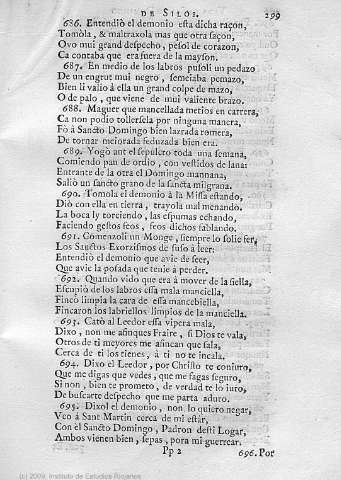 DE SILOS. 299
686. Entendiò el demonio esta dicha raçon,
Tomòla, & maltraxola mas que otra façon,
Ovo mui grand despecho, pesol de corazon,
Ca contaba que era fuera de la mayson.
687. En medio de los labros pusoli un pedazo
De un engrut mui negro, semeiaba pemazo,
Bien li valio à ella un grand colpe de mazo,
O de palo, que viene de mui valiente brazo.
688. Maguer que mancellada metios en carrera,
Ca non podio tollersela por ninguna manera,
Fo à Sancto Domingo bien lazrada romera,
De tornar meiorada feduzada bien era.
689. Yogò ant el sepulcro toda una semana,
Comiendo pan de ordio, con vestidos de lana:
Entrante de la otra el Domingo mannana,
Saliò un sancto grano de la sancta milgrana.
690. Tomola el demonio à la Missa estando,
Diò con ella en tierra, trayola mal menando,
La boca ly torciendo, las espumas echando,
Faciendo gestos feos, feos dichos fablando.
691. Comenzoli un Monge, siempre lo solie fer,
Los Sanctos Exorzismos de suso à leer:
Entendiò el demonio que avie de seer,
Que avie la posada que tenie à perder.
692. Quando vido que era à mover de la siella,
Escupiò de los labros essa mala manciella,
Fincò limpia la cara de essa mancebiella,
Fincaron los labriellos limpios de la manciella.
693. Catò al Leedor essa vipera mala,
Dixo, non me afinques Fraire, si Dios te vala,
Otros de ti meyores me afincan que fala,
Cerca de ti los tienes, à ti no te incala.
694. Dixo el Leedor, por Christo te coniuro,
Que me digas que vedes, que me fagas seguro,
Si non, bien te prometo, de verdad te lo iuro,
De buscarte despecho que me parta aduro.
695. Dixol el demonio, non lo quiero negar,
Veo à Sant Martin cerca de mi estàr,
Con el Sancto Domingo, Padron desti Logar,
Ambos vienen bien, sepas, pora mi guerrear.
Pp 2 696. Por
(c) 2009. Instituto de Estudios Riojanos